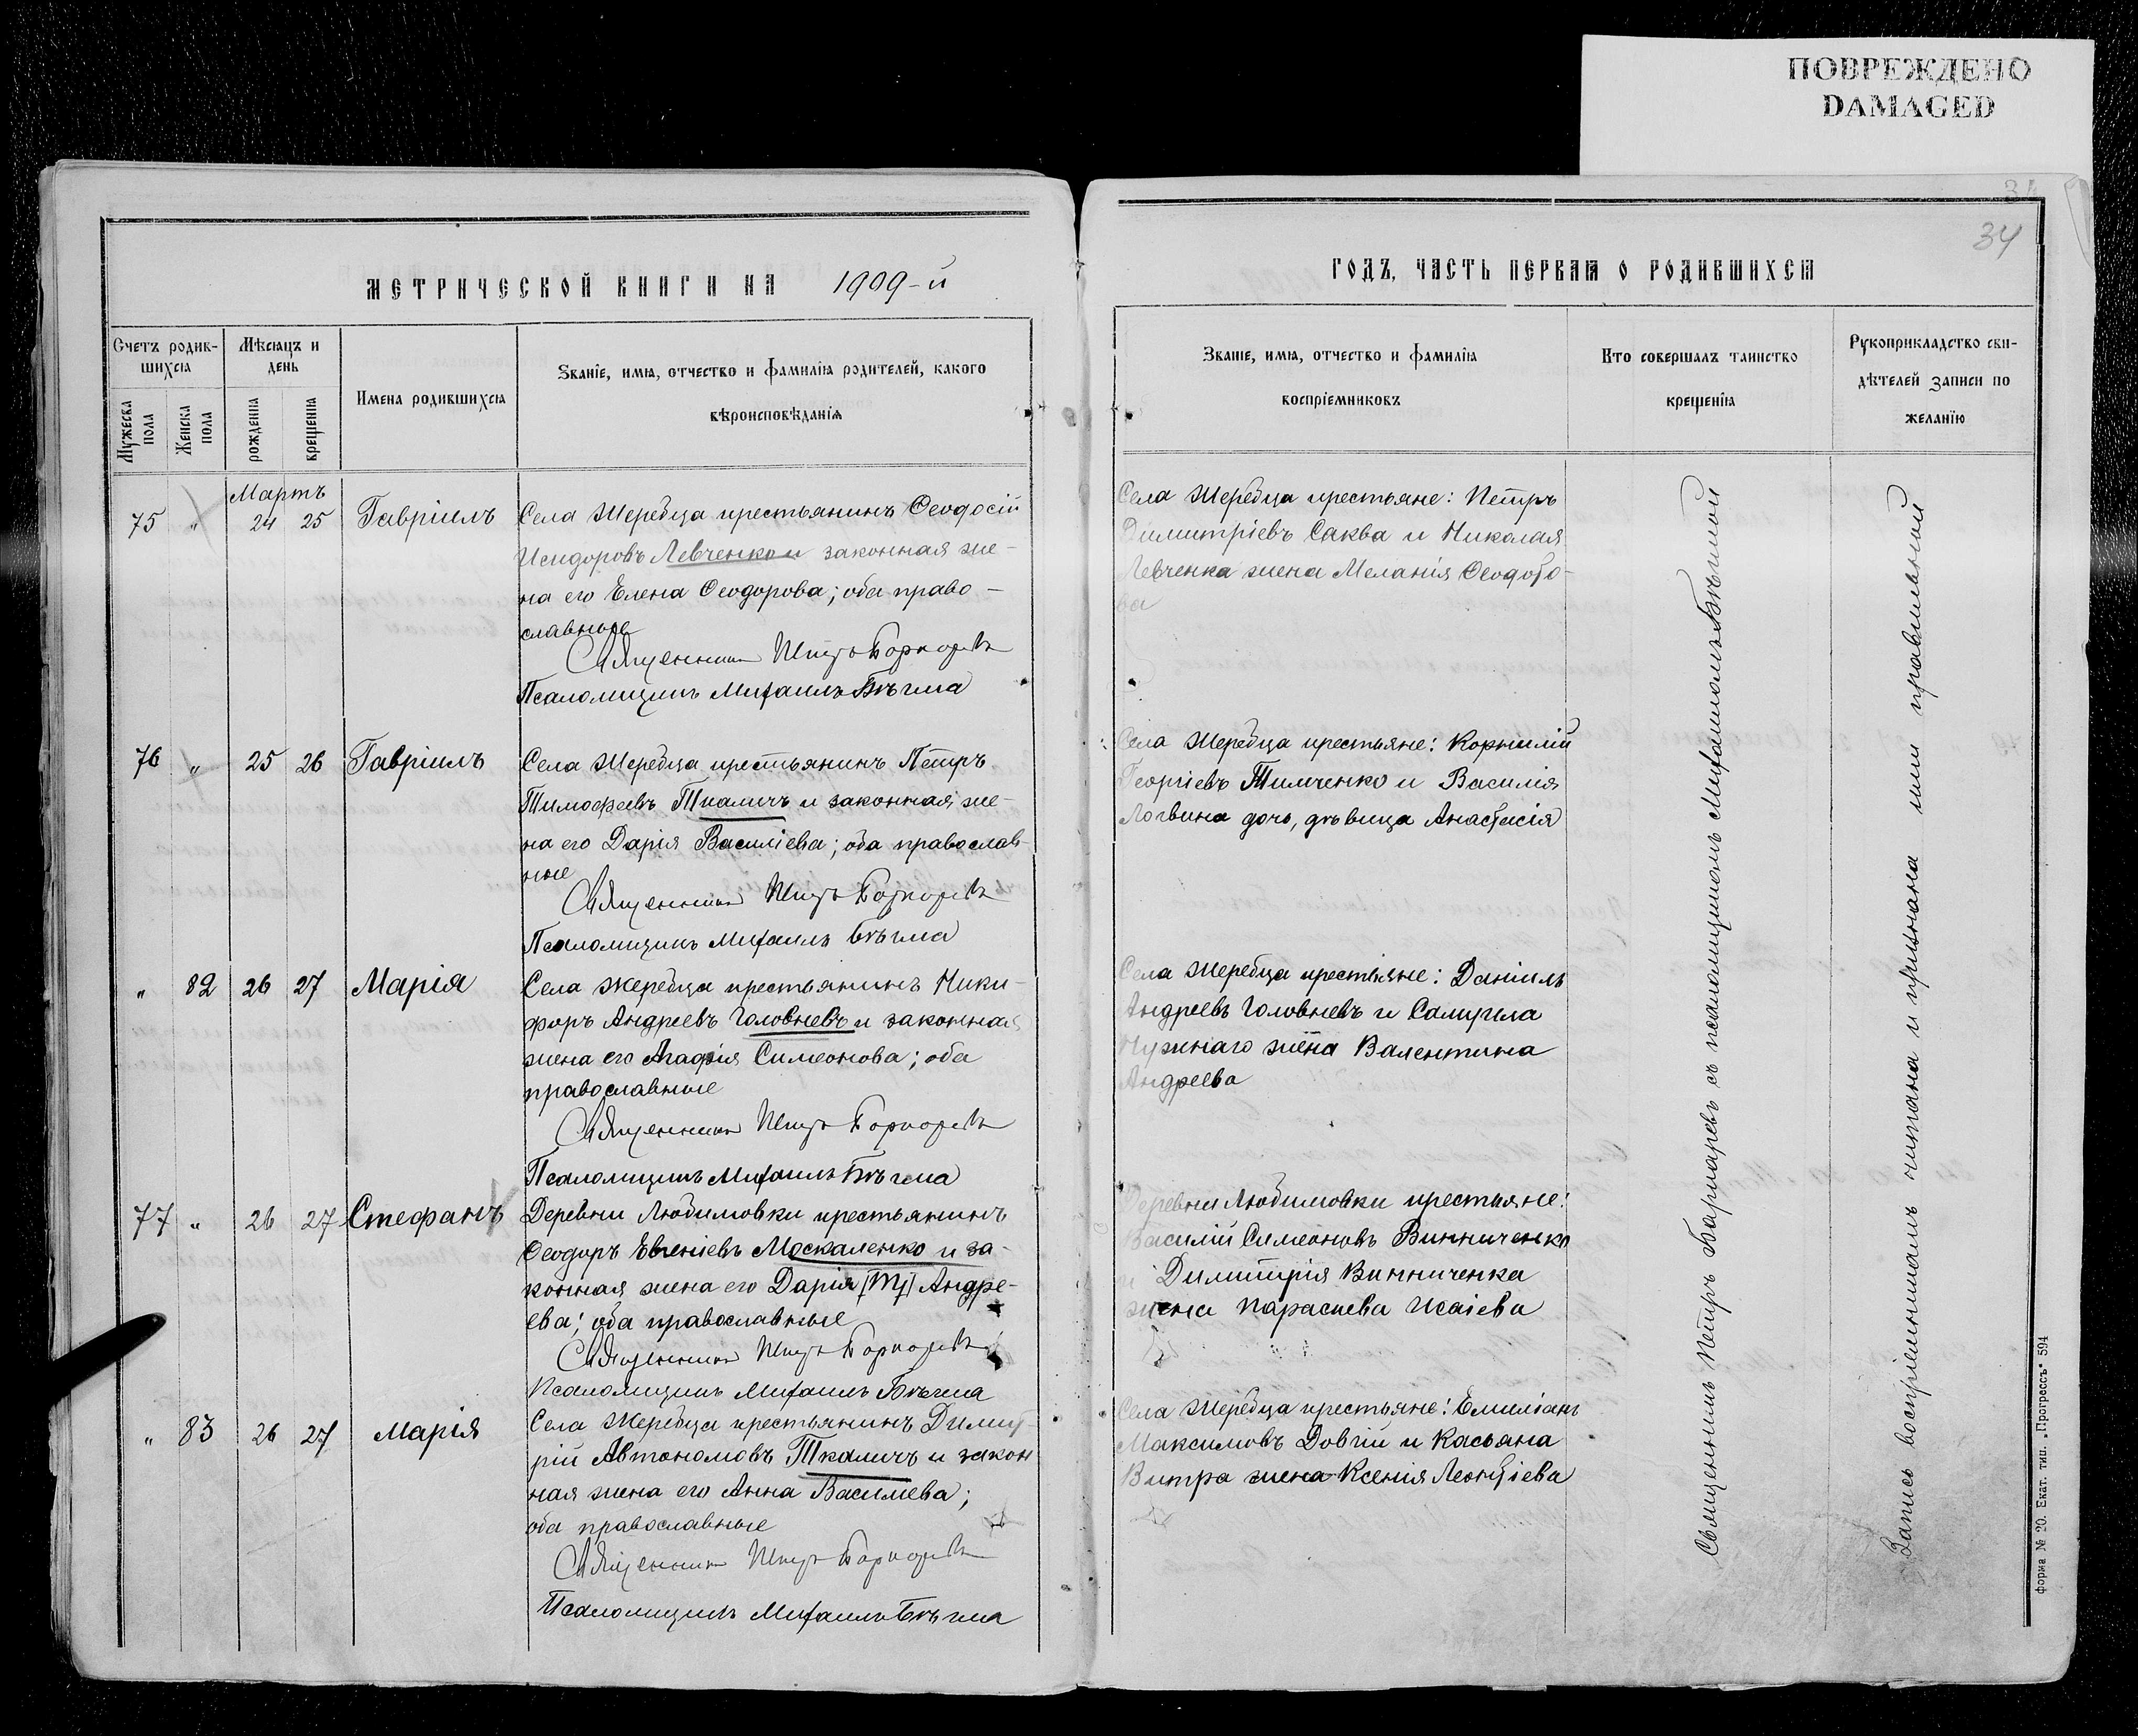 ПОВРЕЖДЕНО
DAMAGED
34
34
МЕТРИЧЕСКОЙ КНИГИ НА 1909-й
ГОДЪ, ЧАСТЬ ПЕРВАЯ О РОДИВШИХСЯ
Счетъ родив-
шихся
Мужеска
пола
Женска
пола
Мѣсяцъ и
день
рожденія
крещенія
Имена родившихся
Званіе, имя, отчество и фамилія родителей, какого
вѣроисповѣданія
Званіе, имя, отчество и фамилія
воспріемниковъ
Кто совершалъ таинство
крещенія
Рукоприкладство сви-
дѣтелей записи по
желанію
Мартъ
75 " 24 25 Гавріилъ
Села Жеребца крестьянинъ Ѳеодосій
Исидоровъ Левченко и законная же-
на его Елена Ѳеодорова; оба право-
славные
Священникъ Петръ Барпаревъ
Псаломщикъ Михаилъ Бѣгма
Села Жеребца крестьяне: Петръ
Димитріевъ Саква и Николая
Левченка жена Меланія Ѳеодоро-
ва
76 " 25 26 Гавріилъ
Села Жеребца крестьянинъ Петръ
Тимофеевъ Ткаличъ и законная же-
на его Дарія Василіева; оба православ-
ные
Священникъ Петръ Барпаревъ
Псаломщикъ Михаилъ Бѣгма
Села Жеребца крестьяне: Корнилій
Георгіевъ Тимченко и Василія
Логвина дочь, дѣвица Анастасія
" 82 26 27 Марія
Села Жеребца крестьянинъ Ники-
форъ Андреевъ Головневъ и законная
жена его Агафія Симеонова; оба
православные
Священникъ Петръ Барпаревъ
Псаломщикъ Михаилъ Бѣгма
Села Жеребца крестьяне: Даніилъ
Андреевъ Головневъ и Самуила
Нужнаго жена Валентина
Андреева
77 " 26 27 Стефанъ
Деревни Любимовки крестьянинъ
Ѳеодоръ Евгеніевъ Москаленко и за-
конная жена его Дарія Андре-
ева; оба православные
Священникъ Петръ Барпаревъ
Псаломщикъ Михаилъ Бѣгма
Деревни Любимовки крестьяне:
Василій Симеоновъ Винниченко
и Димитрія Винниченка
жена Параскева Исаіева
" 83 26 27 Марія
Села Жеребца крестьянинъ Димит-
рій Автономовъ Ткаличъ и закон
ная жена его Анна Василіева;
оба православные
Священникъ Петръ Барпаревъ
Псаломщикъ Михаилъ Бѣгма
Села Жеребца крестьяне: Емиліанъ
Максимовъ Довгій и Касьяна
Витра жена Ксенія Леонтіева
Священникъ Петръ Барпаревъ съ псаломщикомъ Михаиломъ Бѣгмой
Запись воспріемникамъ читана и признана ими правильной
форма № 20. Екат. тип. „Прогрессъ" 594